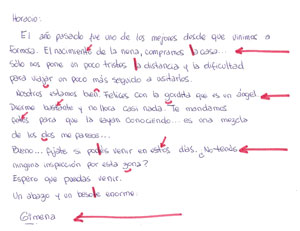 Horacio:
El año pasado fue uno de los mejores desde que vinimos a
Formosa. El nacimiento de la nena, compramos la casa...
Sólo nos pone un poco tristes la distancia y la dificultad
para viajar un poco más seguido a visitarlos.
Nosotros estamos bien. Felices con la gordita que es un ángel.
Duerme bastante y no llora casi nada. Te mandamos
para que la vayan conociendo... es una mezcla
de los dos me parece...
Bueno... fijate si podés venir en estos días. ¿No tenés
ninguna inspección por esta zona?
Espero que puedas venir.
Un abrazo y un besote enorme.
Gimena